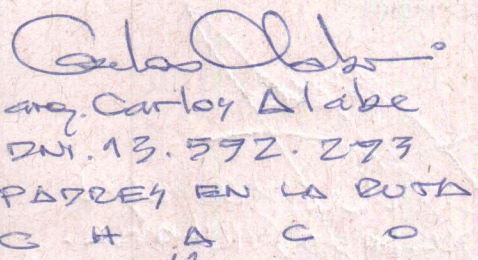 Carlos Alabe
arq. Carlos Alabe
DNI. 13.592.293
PADRES EN LA RUTA
CHACO